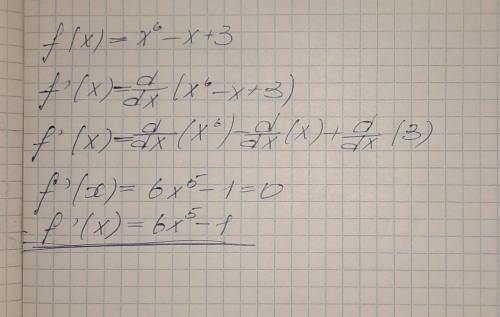 f(x) = x⁶ - x + 3
f'(x) = d/dx (x⁶ - x + 3)
f'(x) = d/dx (x⁶) - d/dx (x) + d/dx (3)
f'(x) = 6x⁵ - 1 = 0
f'(x) = 6x⁵ - 1